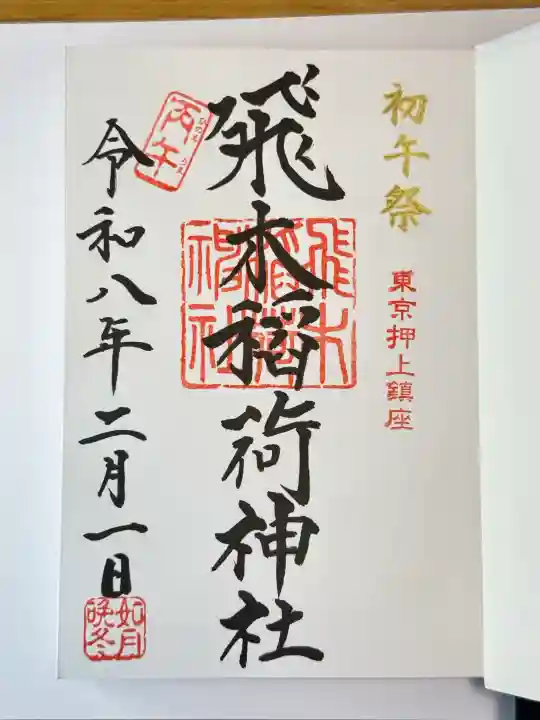 初午祭
東京押上鎮座
飛木稲荷神社
飛木稲荷神社
丙午
ひのえ うま
令和八年二月一日
如月
晩冬